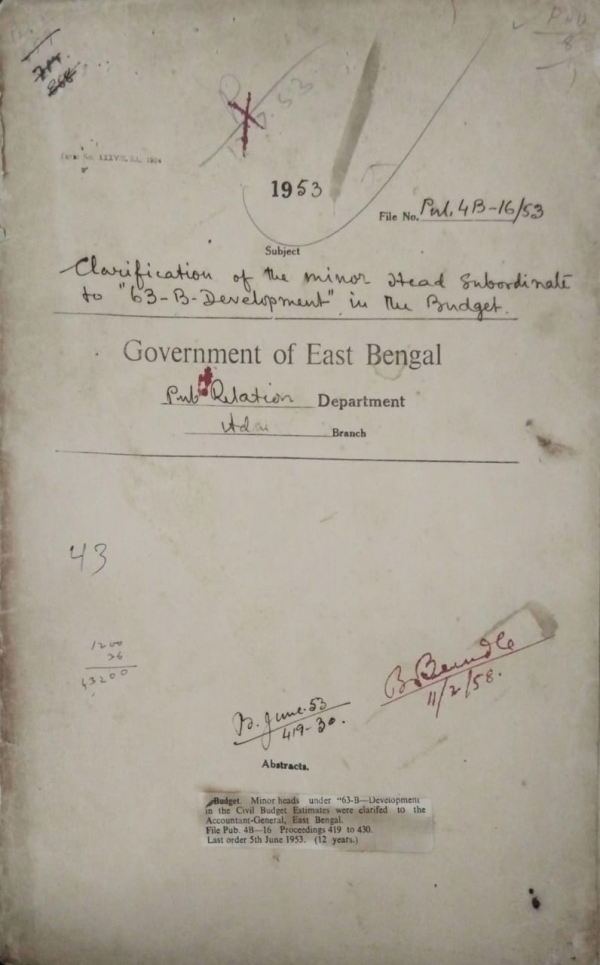 1953
File No. Pub. 4B-16/53
Subject
Clarification of the minor Head Subordinate
to "63-B-Development" in the Budget.
Government of East Bengal
Pub Relation Department
Branch
43
1200
36
43200
B. June. 53
419-30.
11/2/58.
Abstracts.
Budget. Minor heads under "63-B—Development
in the Civil Budget Estimates were clarifed to the
Accountant-General, East Bengal.
File Pub. 4B—16 Proceedings 419 to 430.
Last order 5th June 1953. (12 years.)